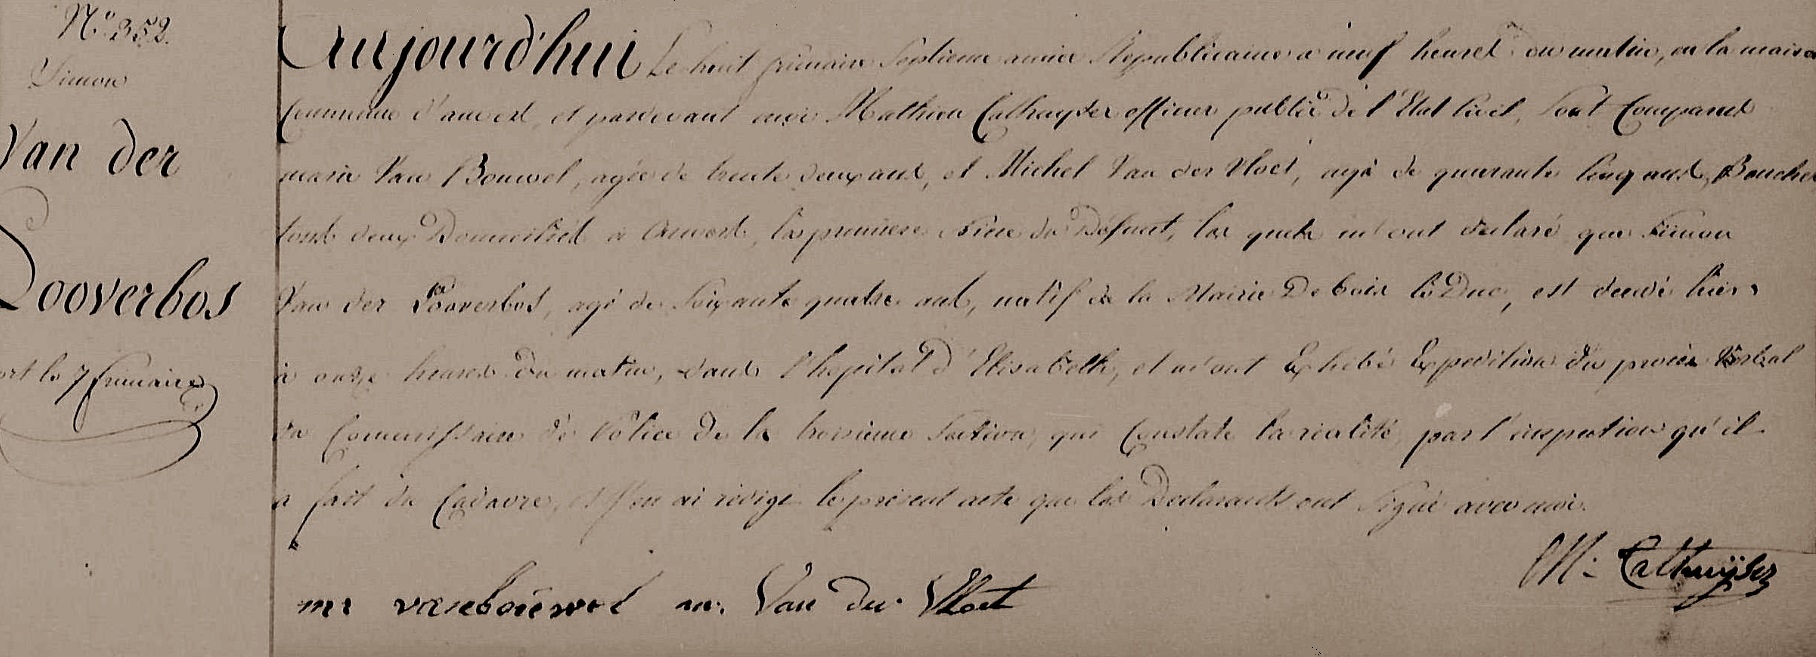 N° 352.
Simon
Van der
Looverbos
mort le 7 frimaire
Aujourd'hui Le huit frimaire Septieme année Républicaine a neuf heures du matin, en la maison
Commune d'anvers, et pardevant moi Mathieu officier public de l'Etat Civil, Sont Comparus
marie Van Bouwel, agée de trente deux ans, et Michel Van der Vloet, agé de quarante Cinq ans, Boucher
tous deux Domiciliés à Anvers, la premiere du Défunt, les quels m'ont declaré que Simon
Van der Looverbos, agé de Soixante quatre ans, natif de la Mairie De bois le Duc, est decedé hier
à onze heures du matin, dans l'hopital d'Elisabeth, et m'ont Exhibé Expedition du procès Verbal
du Commissaire de Police de la troisieme Section, qui Constate la réalité, par l'inspection qu'il
a fait du Cadavre, et j'en ai rédigé le présent acte que les Declarants ont Signé avec moi.
M: Cathuijser
m: vanbouwel m. Van der Vloet